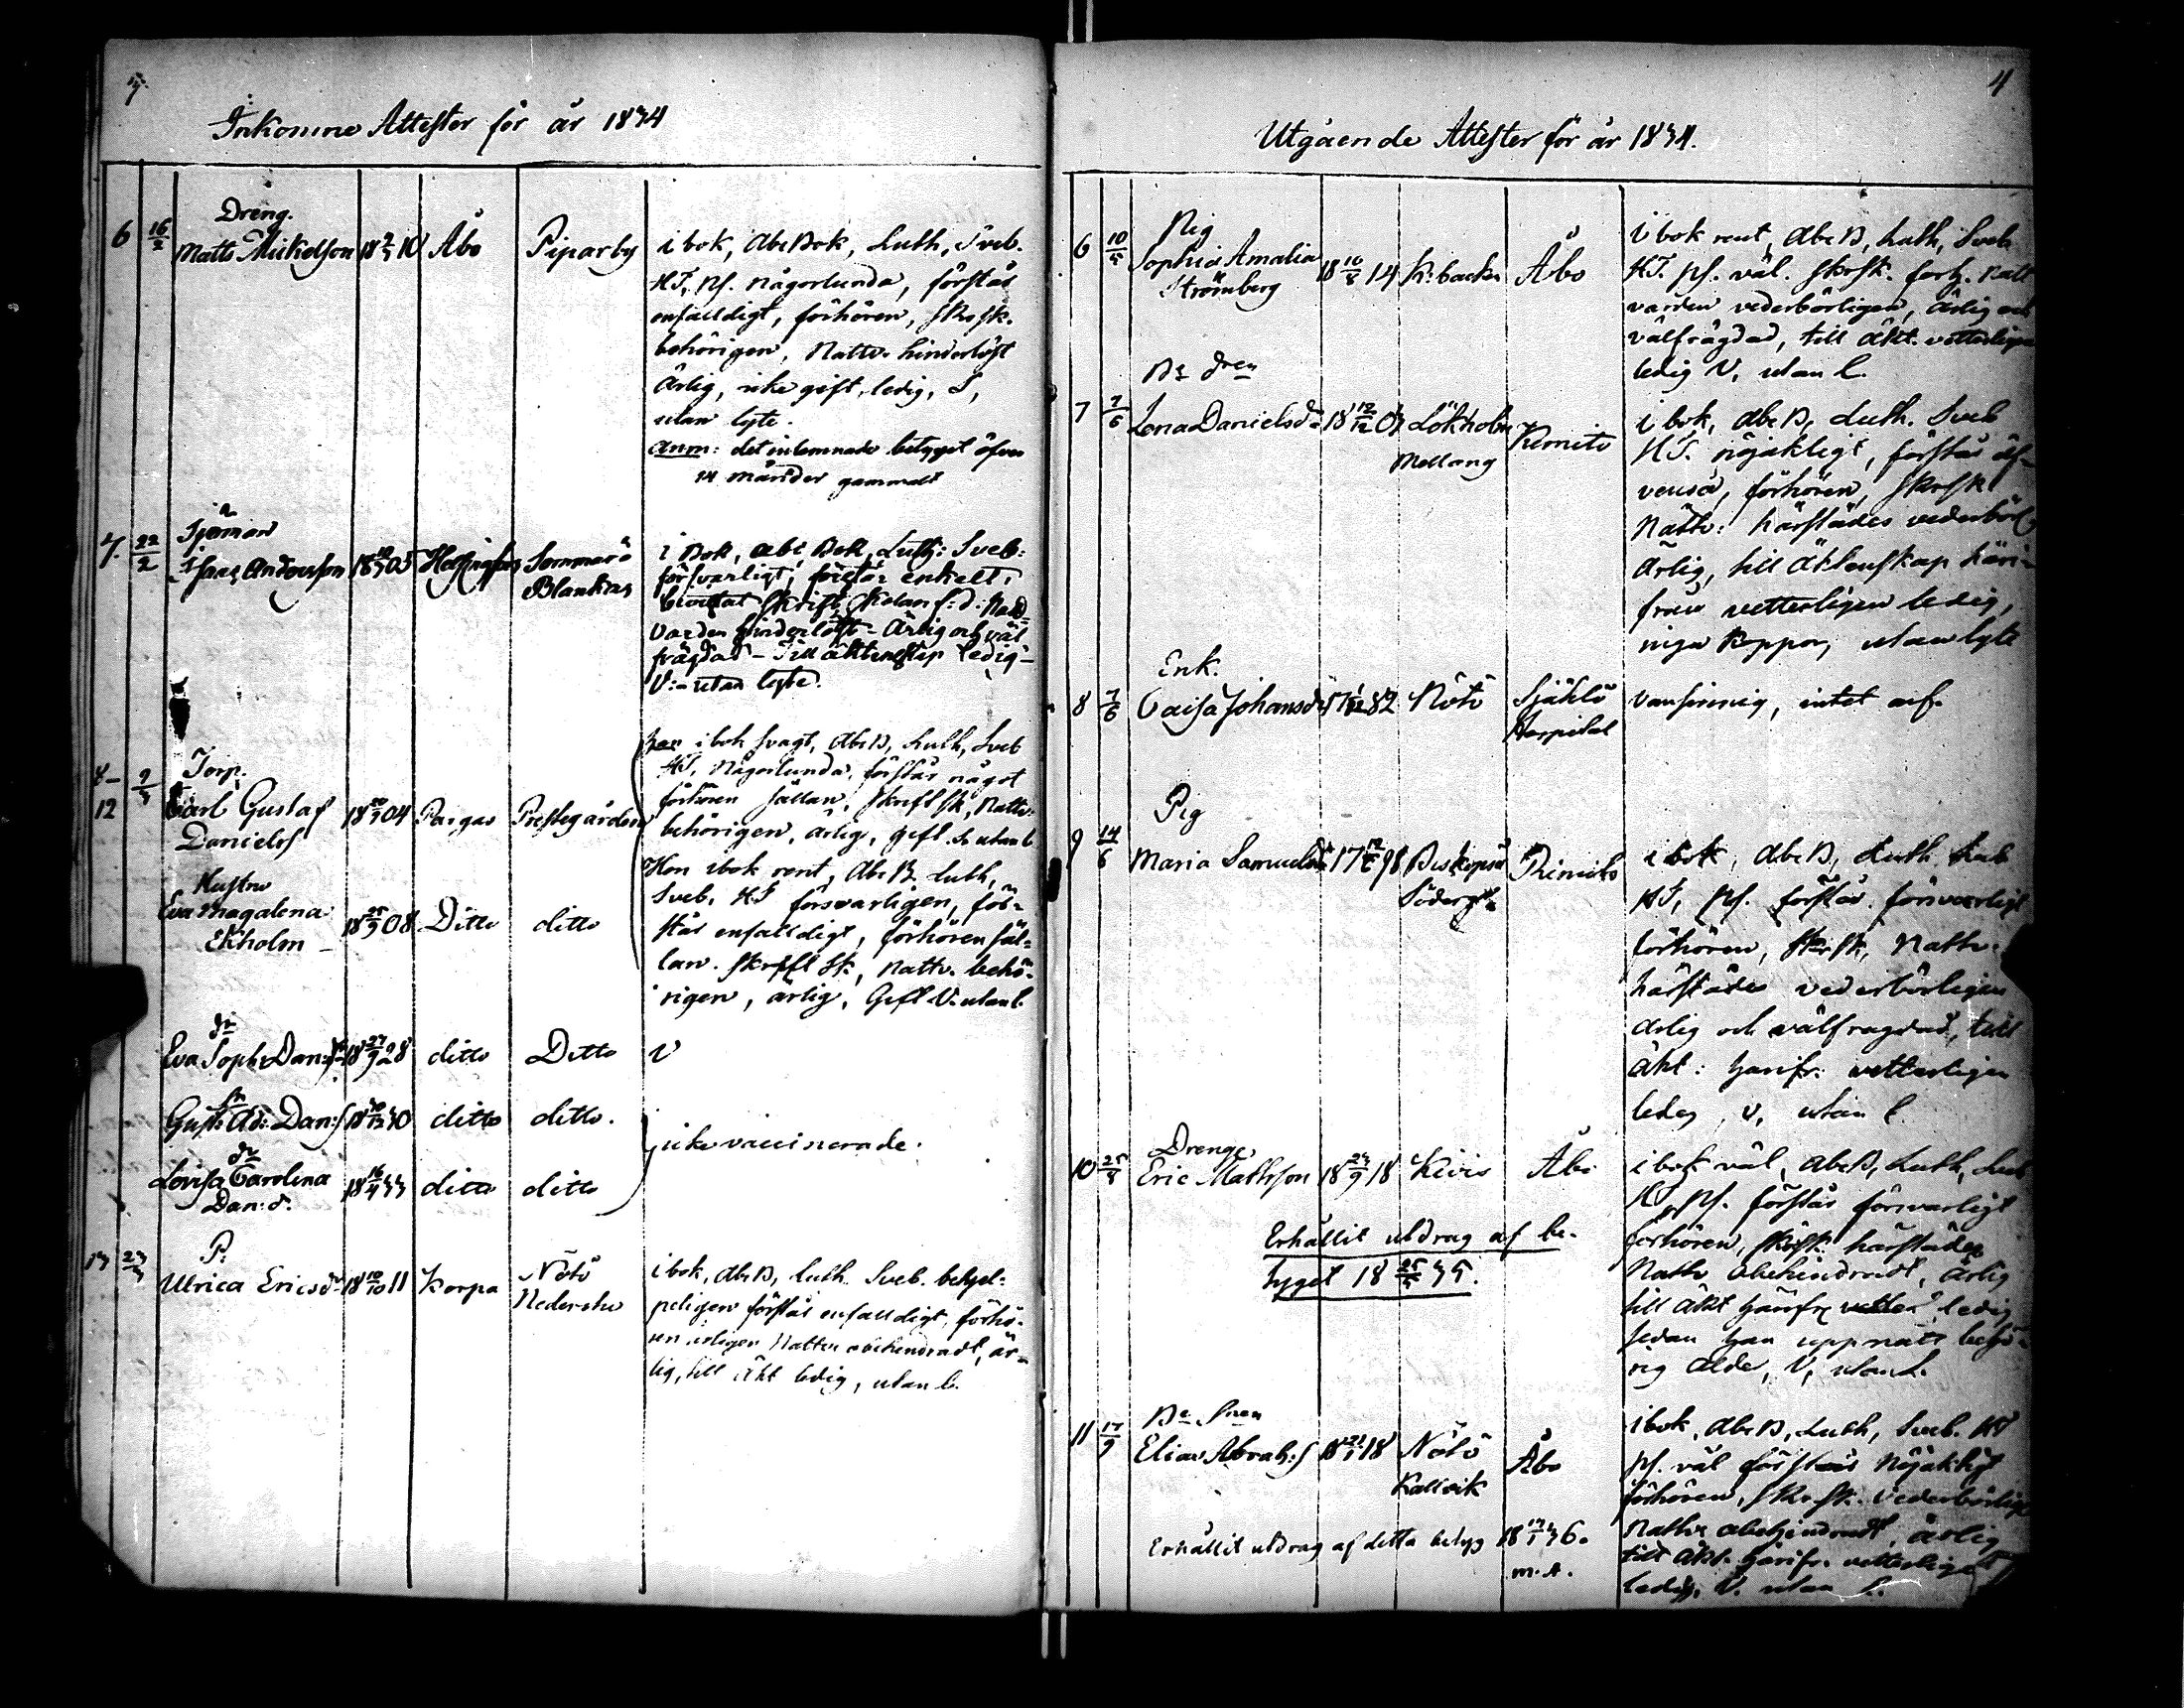 Inkomne Attester för år 1834
6 16/2 Dreng.
Matts Mickelsson 18 9/3 10 Åbo Piparby
i bok, Abc Bok, Luth, Sveb.
HT, Ps. någorlunda, förstår
enfalldigt, förhören, Skrsk.
behörigen, Nattv. hinderlöst
Ärlig, icke gift, ledig, S,
utan lyte.
Anm: det inlemnade betyget öfver
14 månader gammalt
7. 22/2 Sjöman
Isaac Andersson Helsingfors Sommarö
Blankas
i Bok, Abc Bok, Luth: Sveb:
försvarligt, förstår enkelt,
bevistat Skrift Skolan f.d. Natt
varden hinderlöst - Ärlig och väl
frägdad - Till äktenskap ledig -
V: - utan lyte.
8 - 12 9/3 Torp.
Carl Gustaf
Daniels 18 04 Pargas Prestegården
Han i bok svagt, Abc B, Luth, Sveb
HT, Någorlunda, förstår något
förhören sällan, Skrift sk, Nattv.
behörigen, ärlig, gift. S. utan l.
Hustru
Eva Magalena
Ekholm 18 25/9 08 Ditto ditto
Hon i bok rent, Abc B. Luth,
Sveb, HT försvarligen, för-
står enfalldigt, förhören säl-
lan. Skrift sk, Nattv. behö-
rigen, ärlig, Gift V. utan l.
dr
Eva Soph: Dan: 18 27/9 28 ditto Ditto V
sn
Gust: Ad: Dan:s 18 30 ditto ditto.
icke vaccinerade.
dr
Lovisa Carolina
Dan: d. 18 16/4 33 ditto ditto
13 23/3 P:
Ulrica Ericsd 18 10/10 11 Korpo Nötö
Nederste
i bok, Abc B, Luth. Sveb. behjel-
peligen förstår enfalldigt, förhö-
ren Nattv. obehindradt, är-
lig, till äkt ledig, utan l.
4
Utgående Attester för år 1834.
6 10/5 Pig
Sophia Amalia
Strömberg 18 10/8 14 K:backa Åbo
i bok rent, Abc B, Luth, Sveb
HT. ps. väl. skrsk. forh. Natt
varden vederbörligen, Ärlig och
välfrägdad, till äkt. vetterligen
ledig V, utan l.
7 7/6 Be dren
Lena Danielsd 18 12/12 03 Lökholm
Mellang Kimito
i bok, Abc B, Luth. Sveb
HT. nöjaktigt, förstår äf-
venså, förhören, Skrsk
Nattv: härstädes vederbörl
Ärlig, till Äktenskap häri-
från vetterligen ledig,
inga Koppor, utan lyte
8 7/6 Enk.
Caisa Johansdr 17 82 Nötö Själö
Hospital
vansinnig, intet anf.
9 14/6 Pig
Maria Samuelsdr 17 98 Biskopsö
Söderg Kimito
i bok, Abc B, Luth Sveb
HT, Ps. förstår försvarligt
förhören, Skrsk, Nattv.
härstädes vederbörligen
ärlig och välfrägdad, till
äkt: härifr: vetterligen
ledig, V, utan l
10 Drenge,
Eric Mattsson 18 23/9 18 Kivis Åbo
i bok väl, Abc B, Luth, Sveb
HT, ps. förstår försvarligt
förhören, Skrsk härstädes
Nattv obehindradt, Ärlig
till äkt härifr vetterl ledig
sedan han uppnått behö-
rig ålder, V, utan l.
Erhållit utdrag af be-
tyget 18 25/5 35.
11 17/9 Be Snen
Elias Abrah:s 18 21/1 18 Nötö
Kallvik Åbo
i bok, Abc B, Luth, Sveb. HT
ps. väl förstår Nöjaktigt
förhören, Skrsk. vederbörlige
Nattv obehindradt, ärlig
till äkt. härifr. vetterligen
ledig, V. utan l.
Erhållit utdrag af detta betyg 18 17/1 36.
m. A.